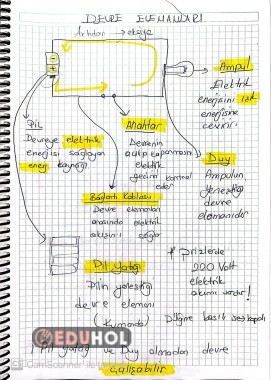 DEVRE ELEMANLARI
Artıdan → eksiye
Ampul
Elektrik
enerjisini ışık
enerjisine
çevirir
Pil
Devreye elektrik
enerjisi sağlayan
enerji kaynağı
Anahtar
Devrenin
açılıp kapanmasını
elektrik
geçişini kontrol
eder
Duy
Ampulun
yerleştiği
devre
elemanıdır
Bağlantı Kablosu
Devre elemanları
arasında elektrik
akışını sağlar
Pil Yatağı
Pilin yerleştiği
devre elemanı
(Kumanda)
* Prizlerde
220 Volt
elektrik
akımı vardır!
Düğme basılı
Pil yatağı ve Duy olmadan devre
çalışabilir
EDUHOL
CamScanner ile